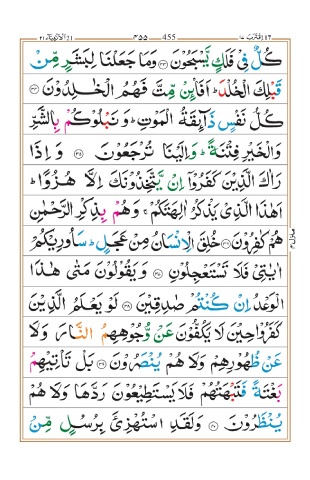 اقترب ١٧ 455 ٤٥٥ الانبیآء ٢١
كُلٌّ فِىْ فَلَكٍ يَّسْبَحُوْنَ ﴿٣٣﴾ وَمَا جَعَلْنَا لِبَشَرٍ مِّنْ
قَبْلِكَ الْخُلْدَ ؕ اَفَا۟ئِنْ مِّتَّ فَهُمُ الْخٰلِدُوْنَ ﴿٣٤﴾
كُلُّ نَفْسٍ ذَآئِقَةُ الْمَوْتِ ؕ وَنَبْلُوْكُمْ بِالشَّرِّ
وَالْخَيْرِ فِتْنَةً ؕ وَاِلَيْنَا تُرْجَعُوْنَ ﴿٣٥﴾ وَاِذَا
رَاٰكَ الَّذِيْنَ كَفَرُوْۤا اِنْ يَّتَّخِذُوْنَكَ اِلَّا هُزُوًا ؕ
اَهٰذَا الَّذِىْ يَذْكُرُ اٰلِهَتَكُمْ ۚ وَهُمْ بِذِكْرِ الرَّحْمٰنِ
هُمْ كٰفِرُوْنَ ﴿٣٦﴾ خُلِقَ الْاِنْسَانُ مِنْ عَجَلٍ ؕ سَاُورِيْكُمْ
اٰيٰتِىْ فَلَا تَسْتَعْجِلُوْنِ ﴿٣٧﴾ وَيَقُوْلُوْنَ مَتٰى هٰذَا
الْوَعْدُ اِنْ كُنْتُمْ صٰدِقِيْنَ ﴿٣٨﴾ لَوْ يَعْلَمُ الَّذِيْنَ
كَفَرُوْا حِيْنَ لَا يَكُفُّوْنَ عَنْ وُّجُوْهِهِمُ النَّارَ وَلَا
عَنْ ظُهُوْرِهِمْ وَلَا هُمْ يُنْصَرُوْنَ ﴿٣٩﴾ بَلْ تَاْتِيْهِمْ
بَغْتَةً فَتَبْهَتُهُمْ فَلَا يَسْتَطِيْعُوْنَ رَدَّهَا وَلَا هُمْ
يُنْظَرُوْنَ ﴿٤٠﴾ وَلَقَدِ اسْتُهْزِئَ بِرُسُلٍ مِّنْ
منزل ٤